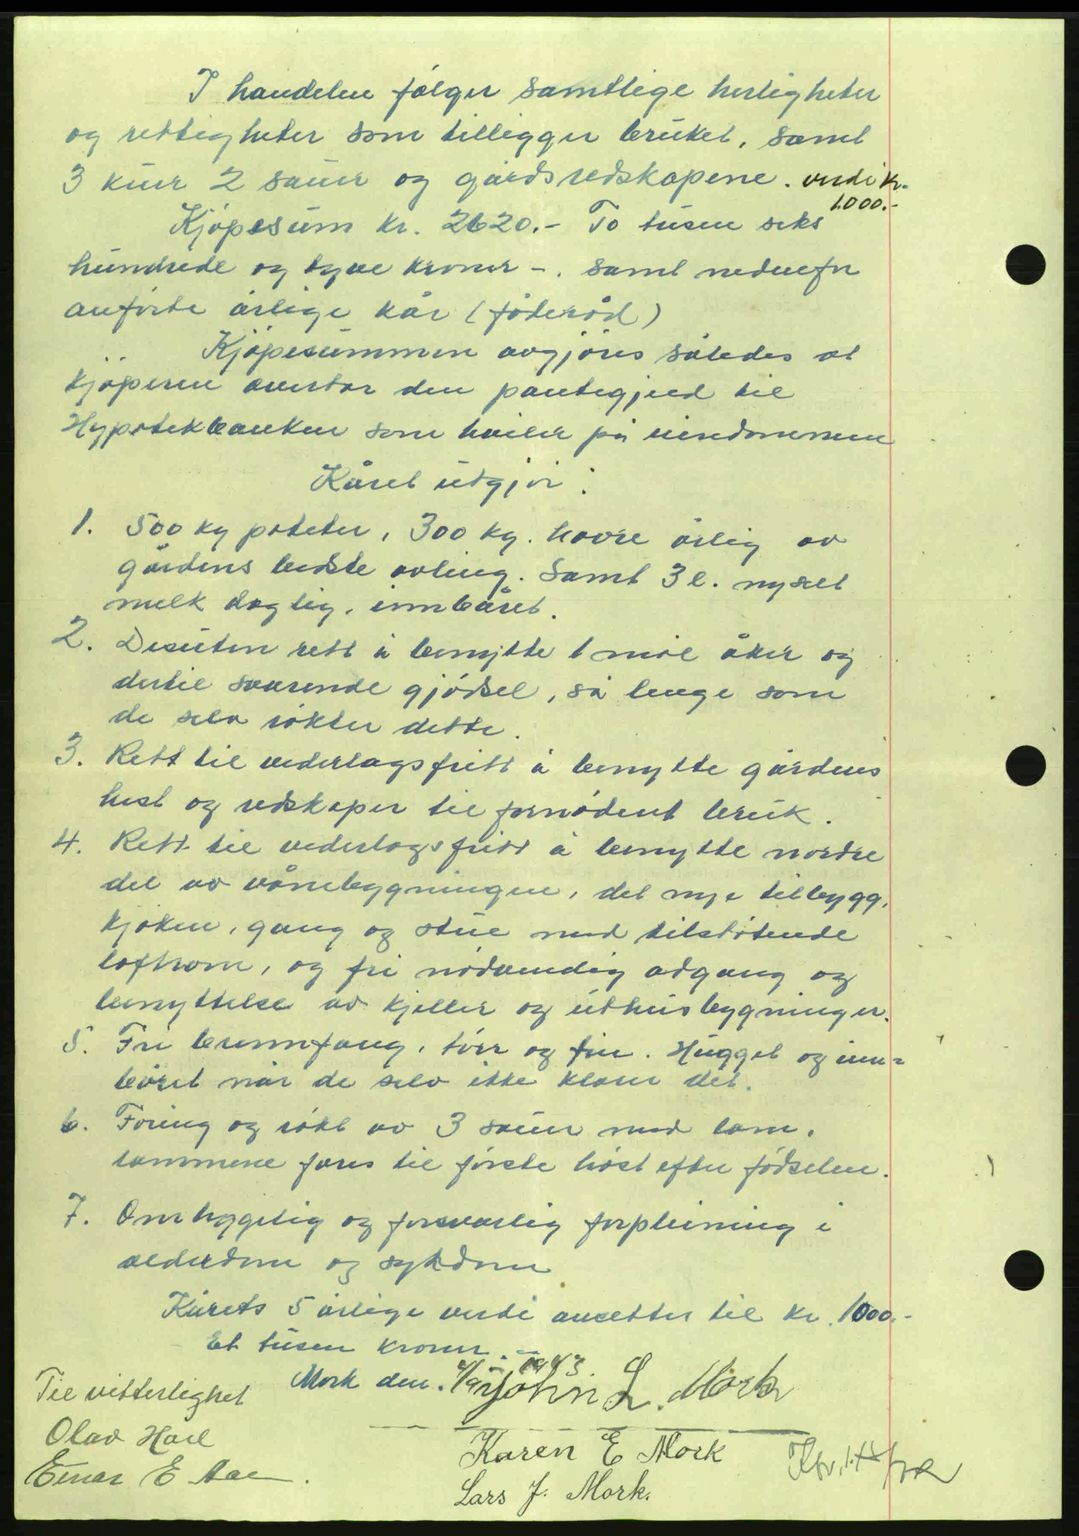 I handelen følger samtlige herligheter
og rettigheter som tilligger bruket, samt
3 kuer 2 sauer og gårdsredskapene. verdi kr.
1.000.-
Kjøpesum kr. 2620.- To tusen seks
hundrede og tyve kroner -. samt nedenfor
anførte årlige kår (føderåd)
Kjøpesummen avgjøres således at
kjøperen overtar den pantegjeld til
Hypotekbanken som hviler på eiendommen
Kåret utgjør:
1. 500 kg poteter, 300 kg. havre årlig av
gårdens bedste avling. Samt 3 l. nysilt
melk daglig, innbåret.
2. Desuten rett å benytte 1 mål åker og
dertil svarende gjødsel, så lenge som
de selv røkter dette.
3. Rett til vederlagsfritt å benytte gårdens
hest og redskaper til fornødent bruk.
4. Rett til vederlagsfritt å benytte nordre
del av vånebygningen, det nye tilbygg,
kjøken, gang og stue med tilstøtende
loftrom, og fri nødvendig adgang og
benyttelse av kjeller og uthusbygninger.
5. Fri brennfang, tørr og fin. Hugget og inn=
båret når de selv ikke klarer det.
6. Foring og røkt av 3 sauer med lam,
lammene fores til første høst efter fødselen.
7. Omhyggelig og forsvarlig forpleining i
alderdom og sykdom
Kårets 5 årlige verdi ansettes til kr. 1000.-
Et tusen kroner. -
Mork den 1943
John L. Mork
Til vitterlighet
Olav Hael
Karen E Mork
Einar E Aae.
Lars J. Mork.